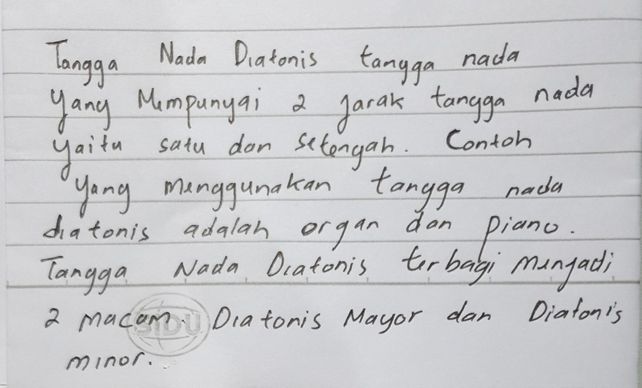 Tangga Nada Diatonis tangga nada
yang Mempunyai 2 jarak tangga nada
yaitu satu dan setengah. Contoh
yang menggunakan tangga nada
diatonis adalah organ dan piano.
Tangga Nada Diatonis terbagi menjadi
2 macam. Diatonis Mayor dan Diatonis
minor.
SIDU